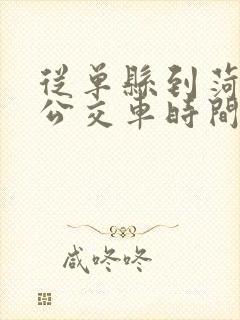 從單縣到菏
公交車時間
咸咚咚